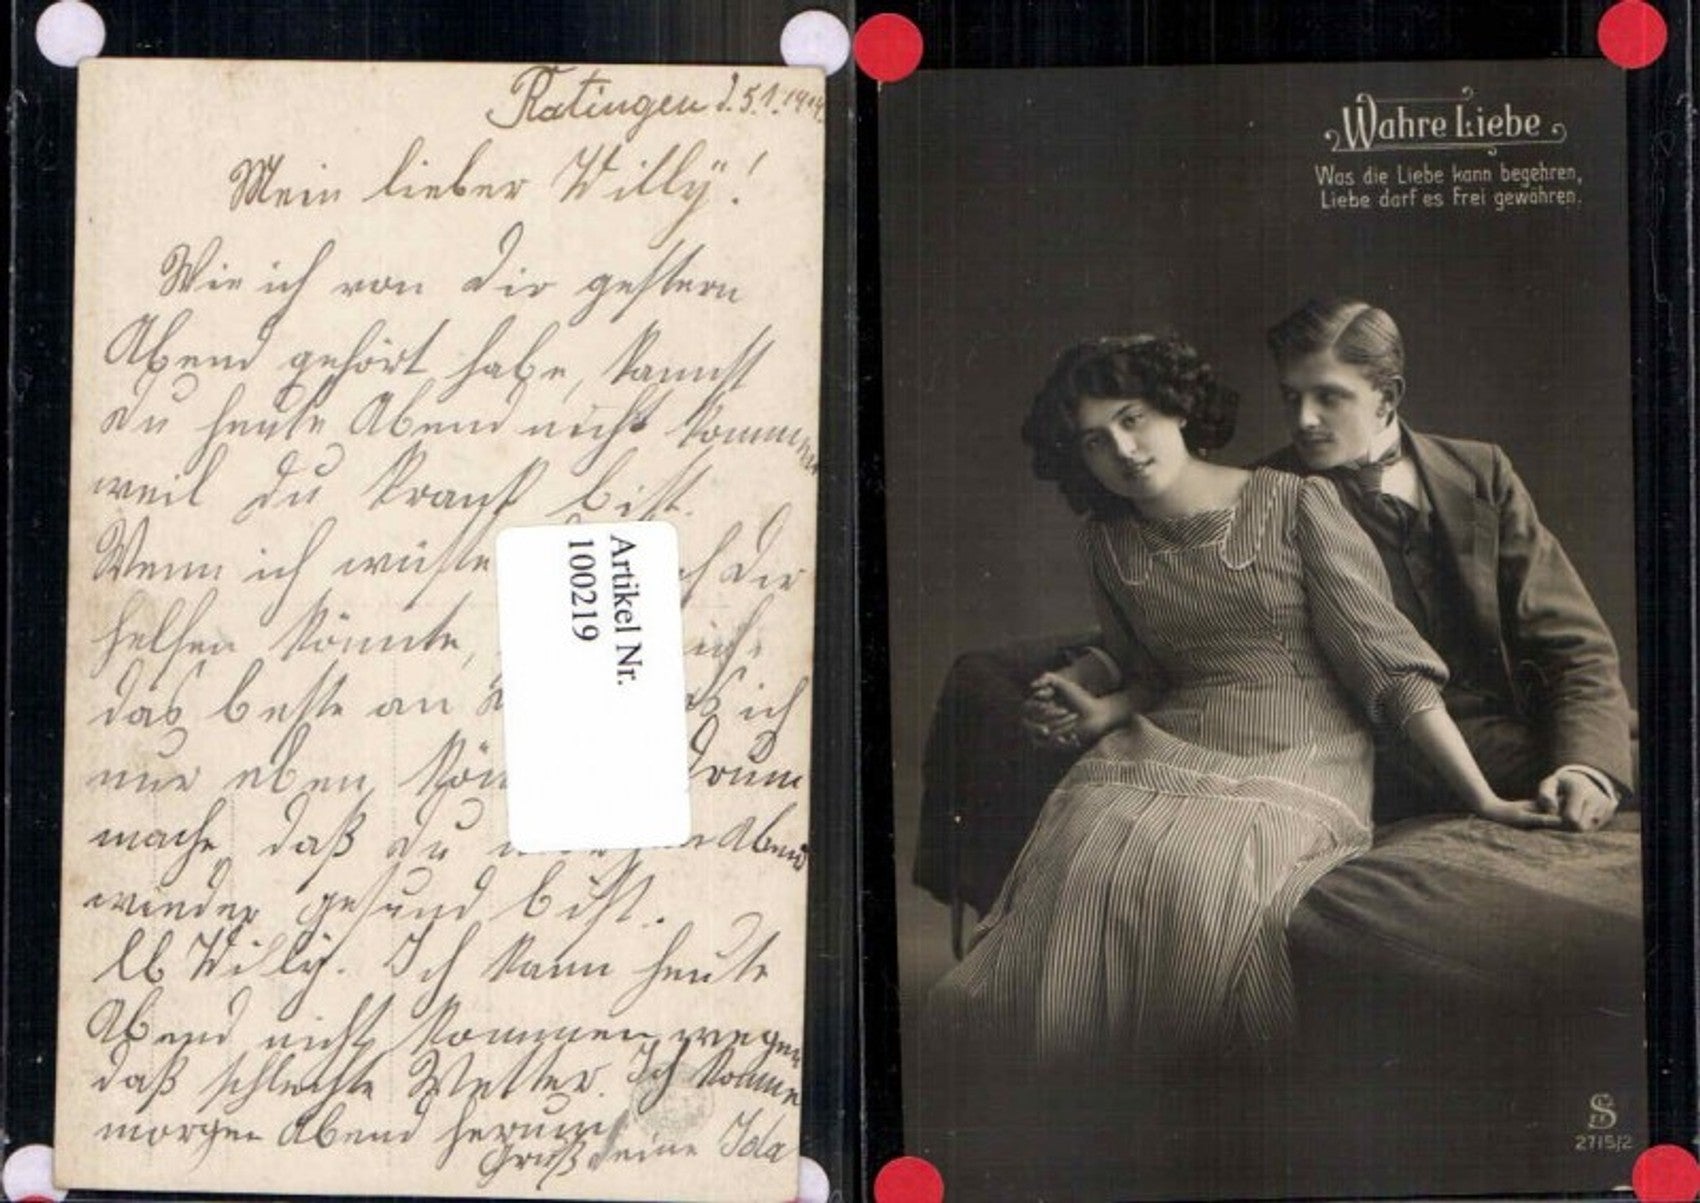 Ratingen d. 5.1.1919.
Mein lieber Willÿ!
Wie ich von dir gestern
Abend gehört habe, kannst
du heute Abend nicht kommen
weil du krank bist.
Wenn ich wüste dir
helfen könnte, ich
das beste an ich
nur eben drum
mache, daß du Abend
wieder gesund bist.
Lb Willÿ. Ich kann heute
Abend nicht kommen wegen
daß schlechte Wetter. Ich komme
morgen Abend herum
Gruß deine Ida
Artikel Nr.
100219
Wahre Liebe
Was die Liebe kann begehren,
Liebe darf es frei gewähren.
S
2715/2